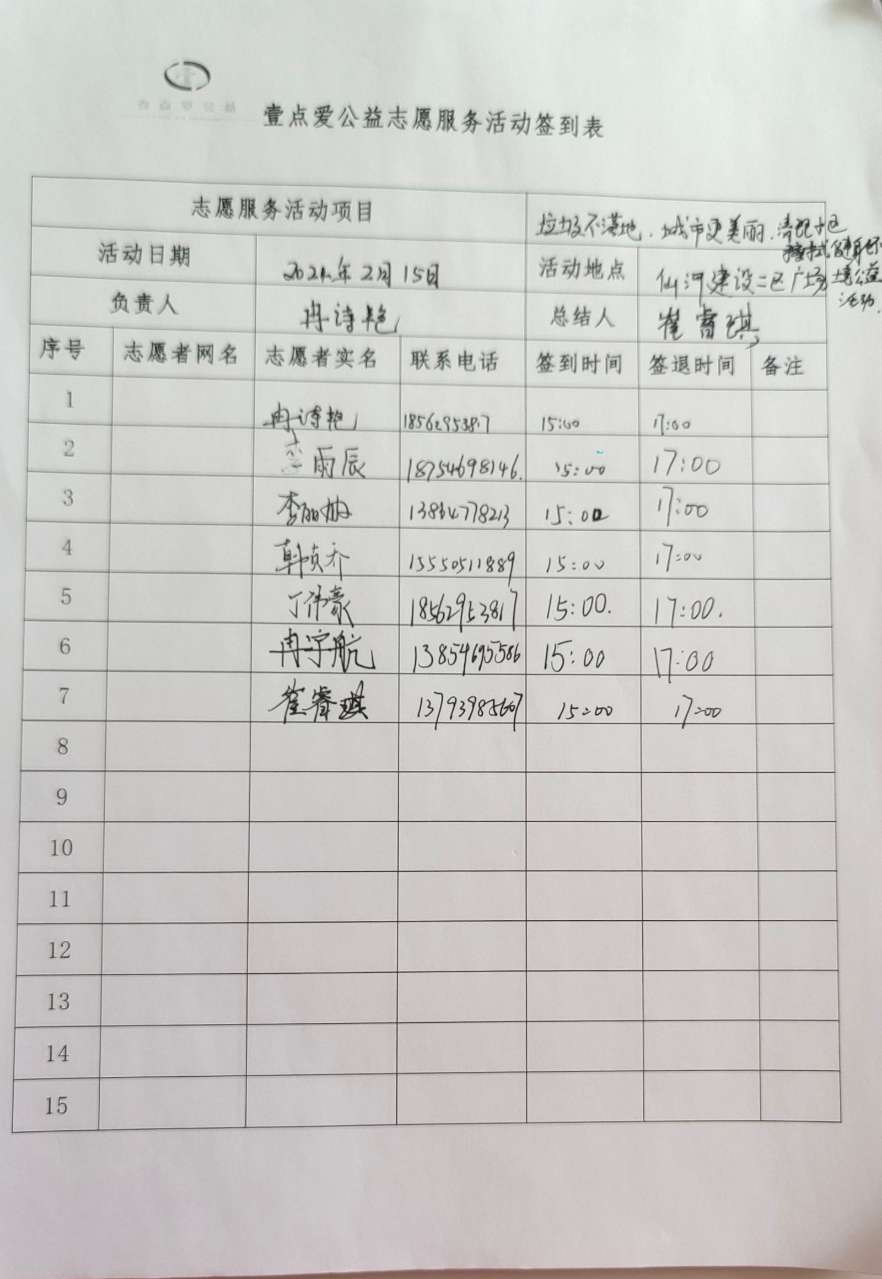 壹点爱公益志愿服务活动签到表
志愿服务活动项目 垃圾不落地、城市更美丽.清理小区
活动日期 2021年2月15日 活动地点 仙河建设二区广场 境公益
活动.
负责人 冉诗艳 总结人 崔睿琪
序号 志愿者网名 志愿者实名 联系电话 签到时间 签退时间 备注
1 冉诗艳 15:00 17:00
2 雨辰 18754698146. 15:00 17:00
3 李丽娜 15:00 17:00
4 韩桢乔 15550511889 15:00 17:00
5 丁伟豪 18562953817 15:00. 17:00.
6 冉宇航 13854695586 15:00 17:00
7 崔睿琪 13793985607 15:00 17:00
8
9
10
11
12
13
14
15